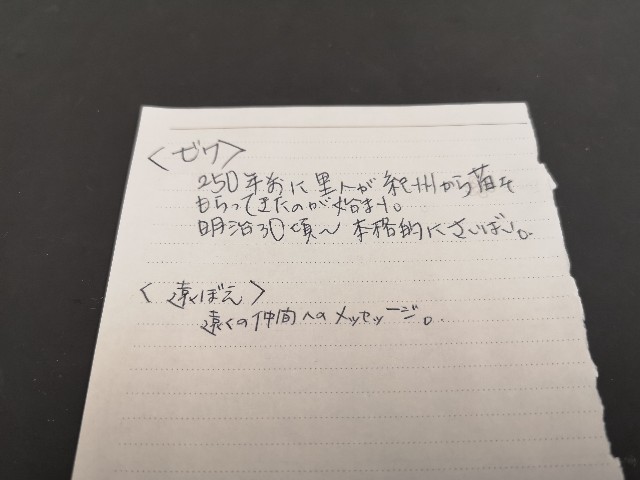 <ビワ>
250年前に里人が紀州から苗を
もらってきたのが始まり。
明治30頃〜本格的にさいばい。
<遠ぼえ>
遠くの仲間へのメッセージ。